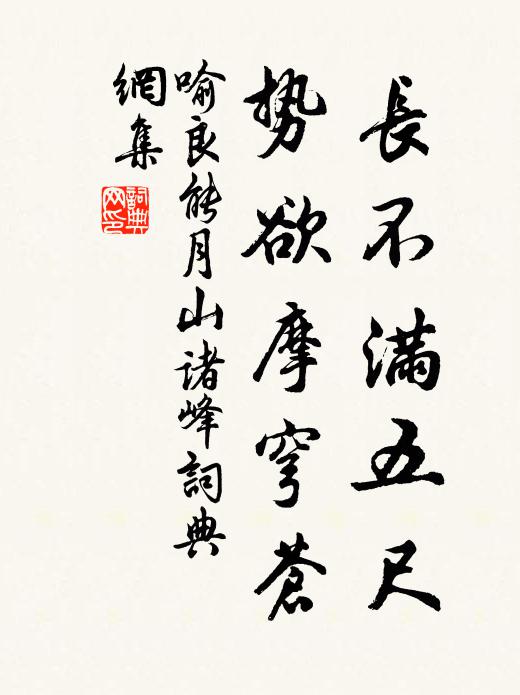 長不滿五尺
勢欲摩穹蒼
喻良能月山諸峰詞典
網集
詞典
网印